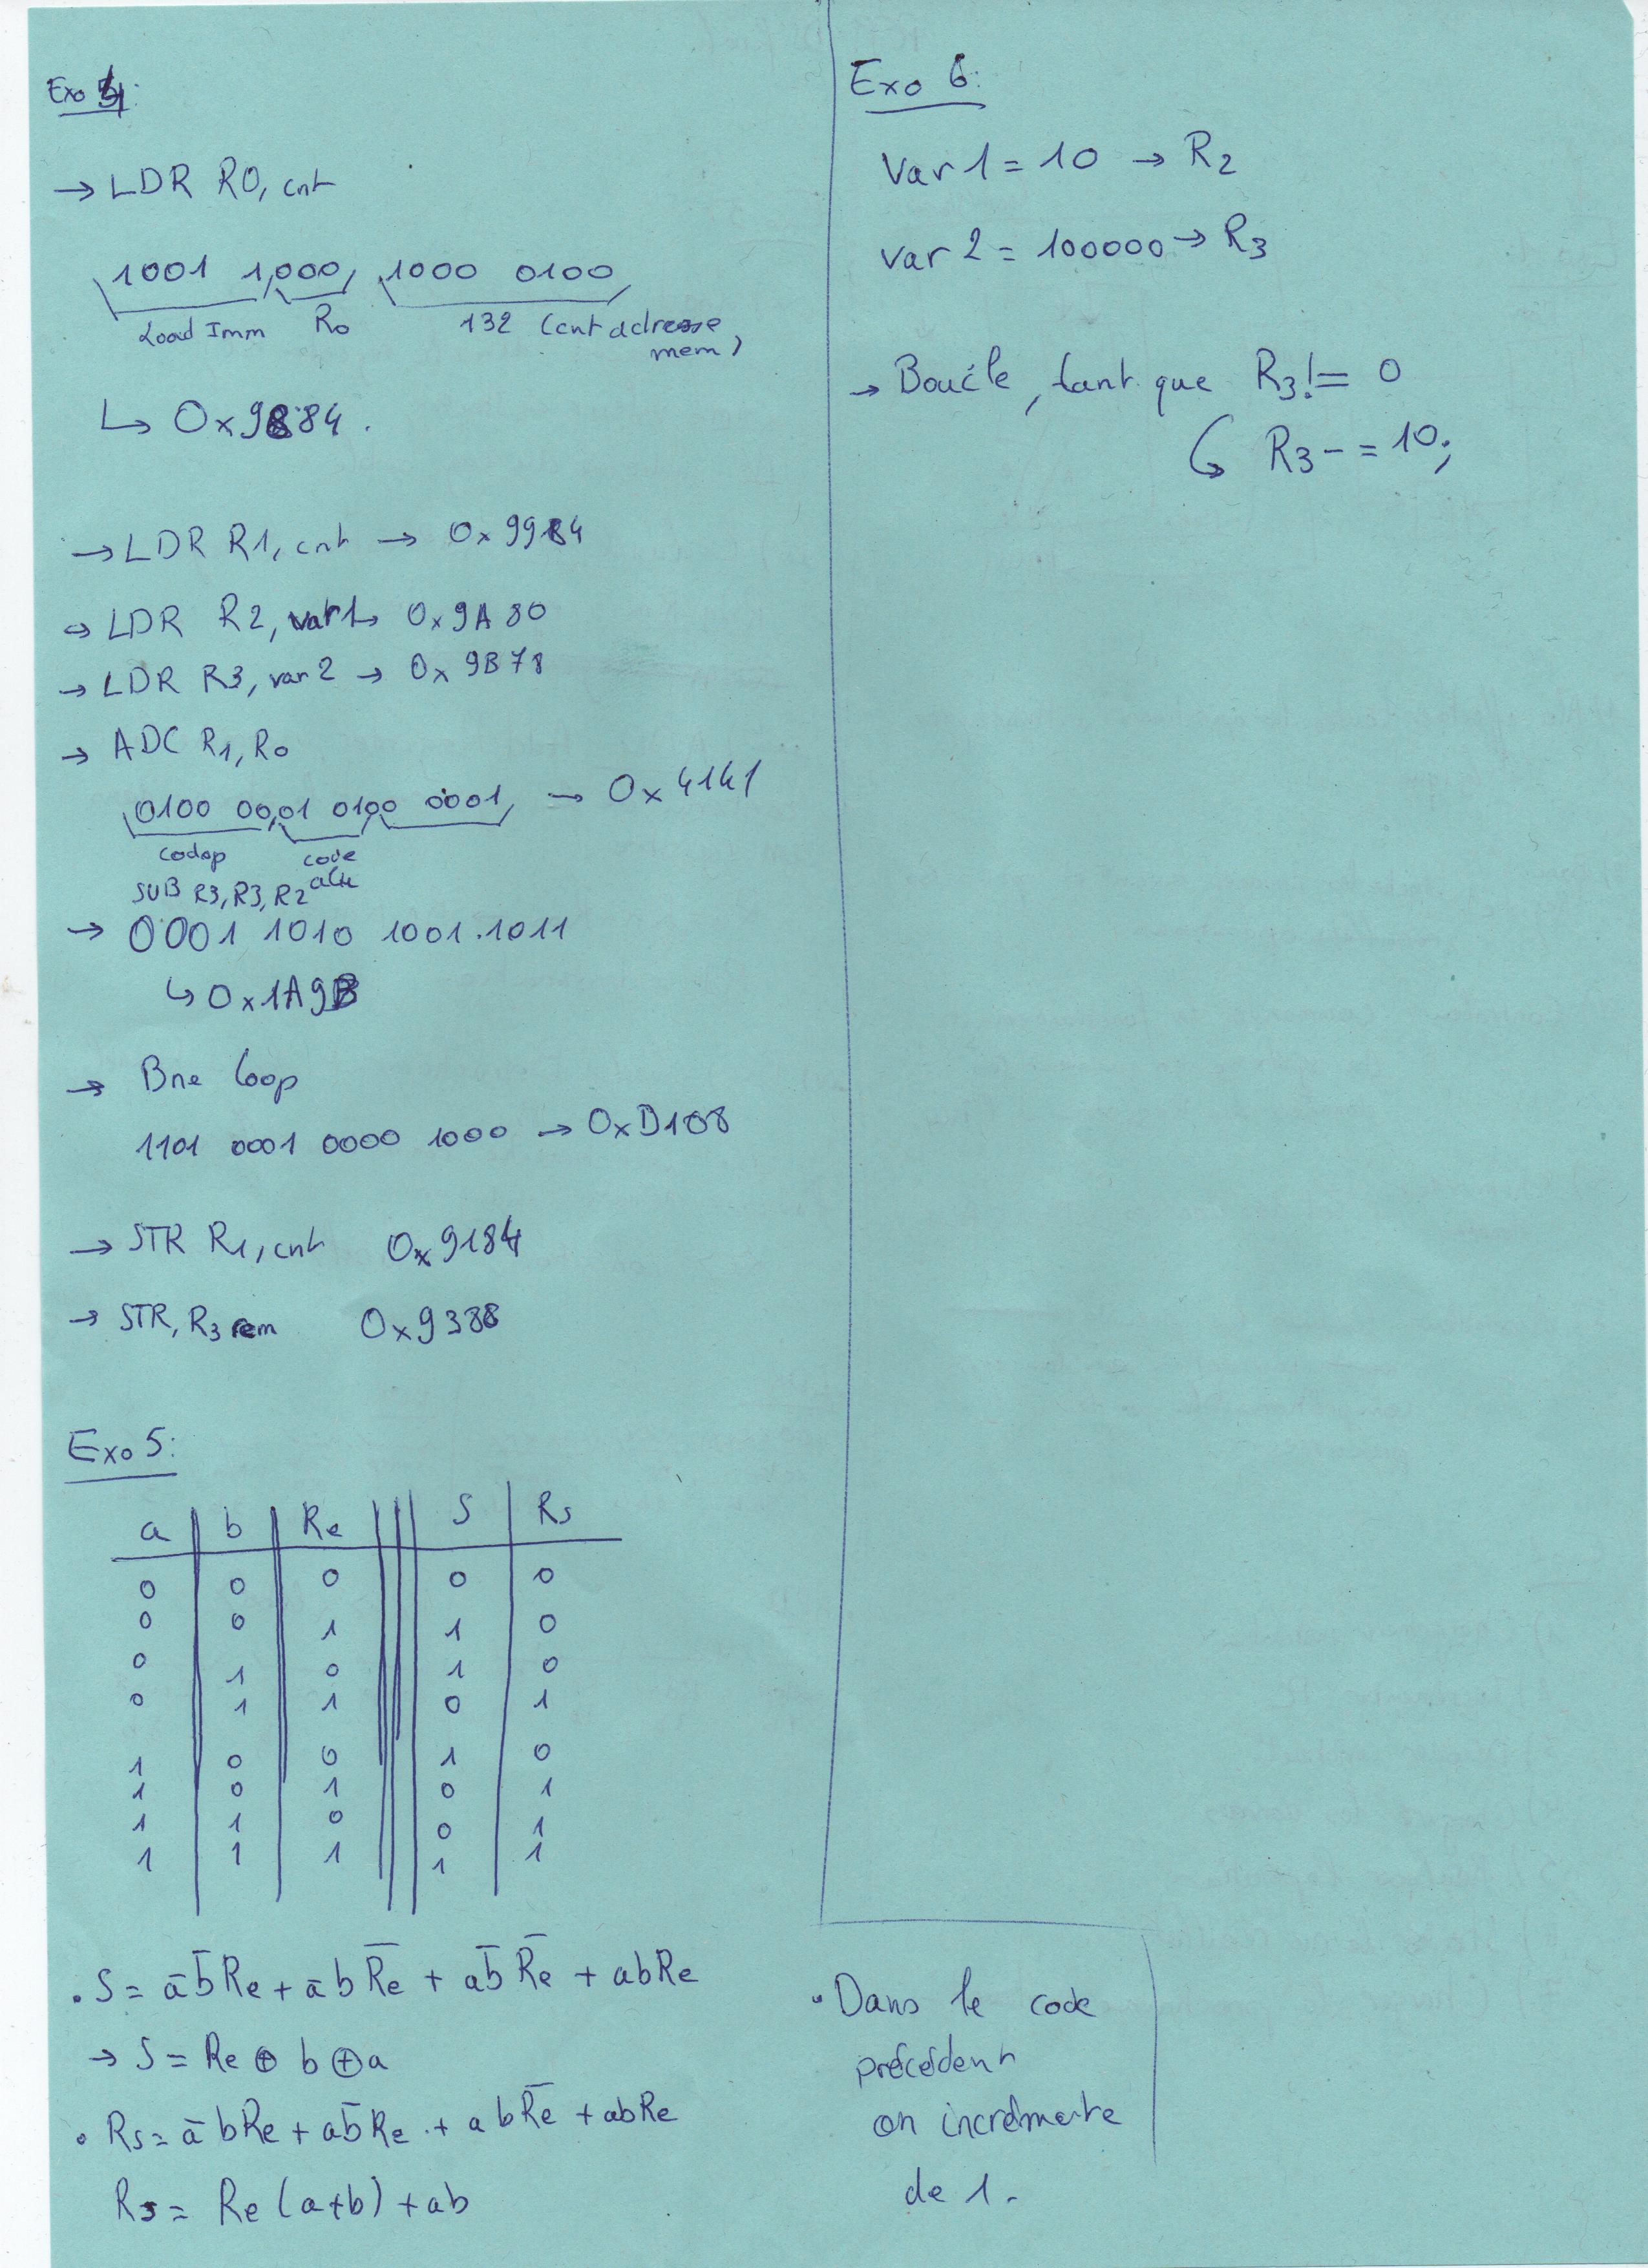 Exo 4:
→ LDR R0, cnt
1001 1 000 1000 0100
Load Imm R0 132 (cnt adresse
mem)
↳ 0x9884.
→ LDR R1, cnt → 0x9984
→ LDR R2, var1 → 0x9A80
→ LDR R3, var2 → 0x9B78
→ ADC R1, R0
0100 00 01 0100 0001 → 0x4141
codop code
alu
SUB R3, R3, R2
→ 0001 1010 1001.1011
↳ 0x1A9B
→ Bne loop
1101 0001 0000 1000 → 0xD108
→ STR R1, cnt 0x9184
→ STR, R3 rem 0x9388
Exo 5:
a b Re S Rs
0 0 0 0 0
0 0 1 1 0
0 1 0 1 0
0 1 1 0 1
1 0 0 1 0
1 0 1 0 1
1 1 0 0 1
1 1 1 1 1
• S = a̅ b̅ Re + a̅ b R̅e̅ + a b̅ R̅e̅ + abRe
→ S = Re ⊕ b ⊕ a
• Rs = a̅ bRe + a b̅ Re + a b R̅e̅ + abRe
Rs = Re (a+b) + ab
Exo 6:
Var 1 = 10 → R2
var 2 = 100000 → R3
→ Boucle, tant que R3 != 0
↳ R3 -= 10;
• Dans le code
précédent
on incrémente
de 1.